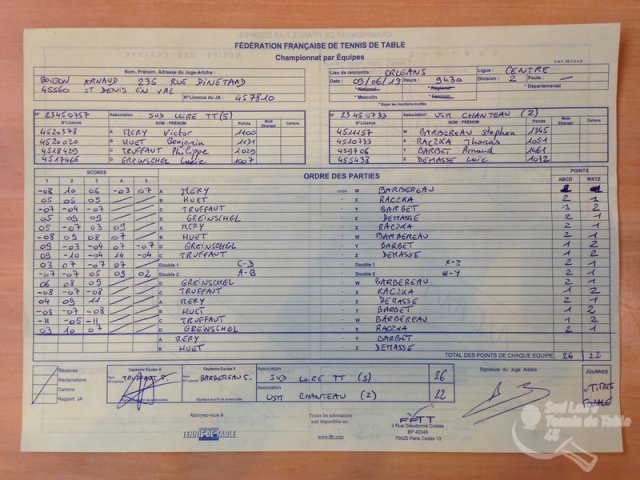 FÉDÉRATION FRANÇAISE DE TENNIS DE TABLE
Championnat par Équipes
Nom, Prénom, Adresse du Juge-Arbitre
BOUJON ARNAUD 236 RUE DINETARD
45560 ST DENIS EN VAL
N°Licence du JA: 457810
Lieu de rencontre : ORLÉANS
Ligue : CENTRE
Date : 09/06/13 Heure : 9H30
Division : 2 Poule : -
National Régional Départemental
Masculin Féminin
N° 23450757 Association SUD LOIRE TT (5)
N°Licence NOM - PRÉNOM Points
4520378 A MERY Victor 1100
4520020 B HUET Benjamin 1131
4518429 C TRUFFAUT Philippe 1029
4517466 D GREINSCHGL Lucie 1007
N° 23450733 Association USM CHANTEAU (2)
N°Licence NOM - PRÉNOM Points
4511157 W BARBEREAU Stephen 1345
4510733 X RACZKA Thomas 1051
459706 Y BARBET Arnaud 1461
455238 Z DEMASSE Loïc 1072
SCORES ORDRE DES PARTIES POINTS
1 2 3 4 5 ABCD WXYZ
-08 10 06 -03 07 A MERY contre W BARBEREAU 2 1
05 06 09 B HUET X RACZKA 2 1
-07 -04 -07 C TRUFFAUT Y BARBET 1 2
05 09 09 D GREINSCHGL Z DEMASSE 2 1
05 -07 03 09 A MERY X RACZKA 2 1
-08 09 08 07 B HUET W BARBEREAU 2 1
09 -03 -04 07 -07 D GREINSCHGL Y BARBET 1 2
09 -10 -04 14 -04 C TRUFFAUT Z DEMASSE 1 2
03 07 -07 07 Double 1 C-D Double 1 X-Z 2 1
-07 -07 05 09 02 Double 2 A-B Double 2 W-Y 2 1
06 08 09 D GREINSCHGL W BARBEREAU 2 1
-08 -07 -08 C TRUFFAUT X RACZKA 1 2
04 09 11 A MERY Z DEMASSE 2 1
-08 -07 -08 B HUET Y BARBET 1 2
-11 -05 -11 C TRUFFAUT W BARBEREAU 1 2
03 10 07 D GREINSCHGL X RACZKA 2 1
A MERY Y BARBET
B HUET Z DEMASSE
TOTAL DES POINTS DE CHAQUE ÉQUIPE 26 22
Réserves
Réclamations
Cartons
Rapport JA
Capitaine Équipe A
TRUFFAUT P.
Capitaine Équipe X
BARBEREAU S.
Association
SUD LOIRE TT (5) 26
Association
USM CHANTEAU (2) 22
Signature du Juge Arbitre
JOURNÉE
N° TITRES
FINALE
Abonnez-vous à
TENNIS DE TABLE
Toutes les informations
sont disponibles sur :
www.fftt.com
FFTT
3 Rue Dieudonné Costes
BP 40348
75625 Paris Cedex 13
Sud Loire
Tennis de Table
45